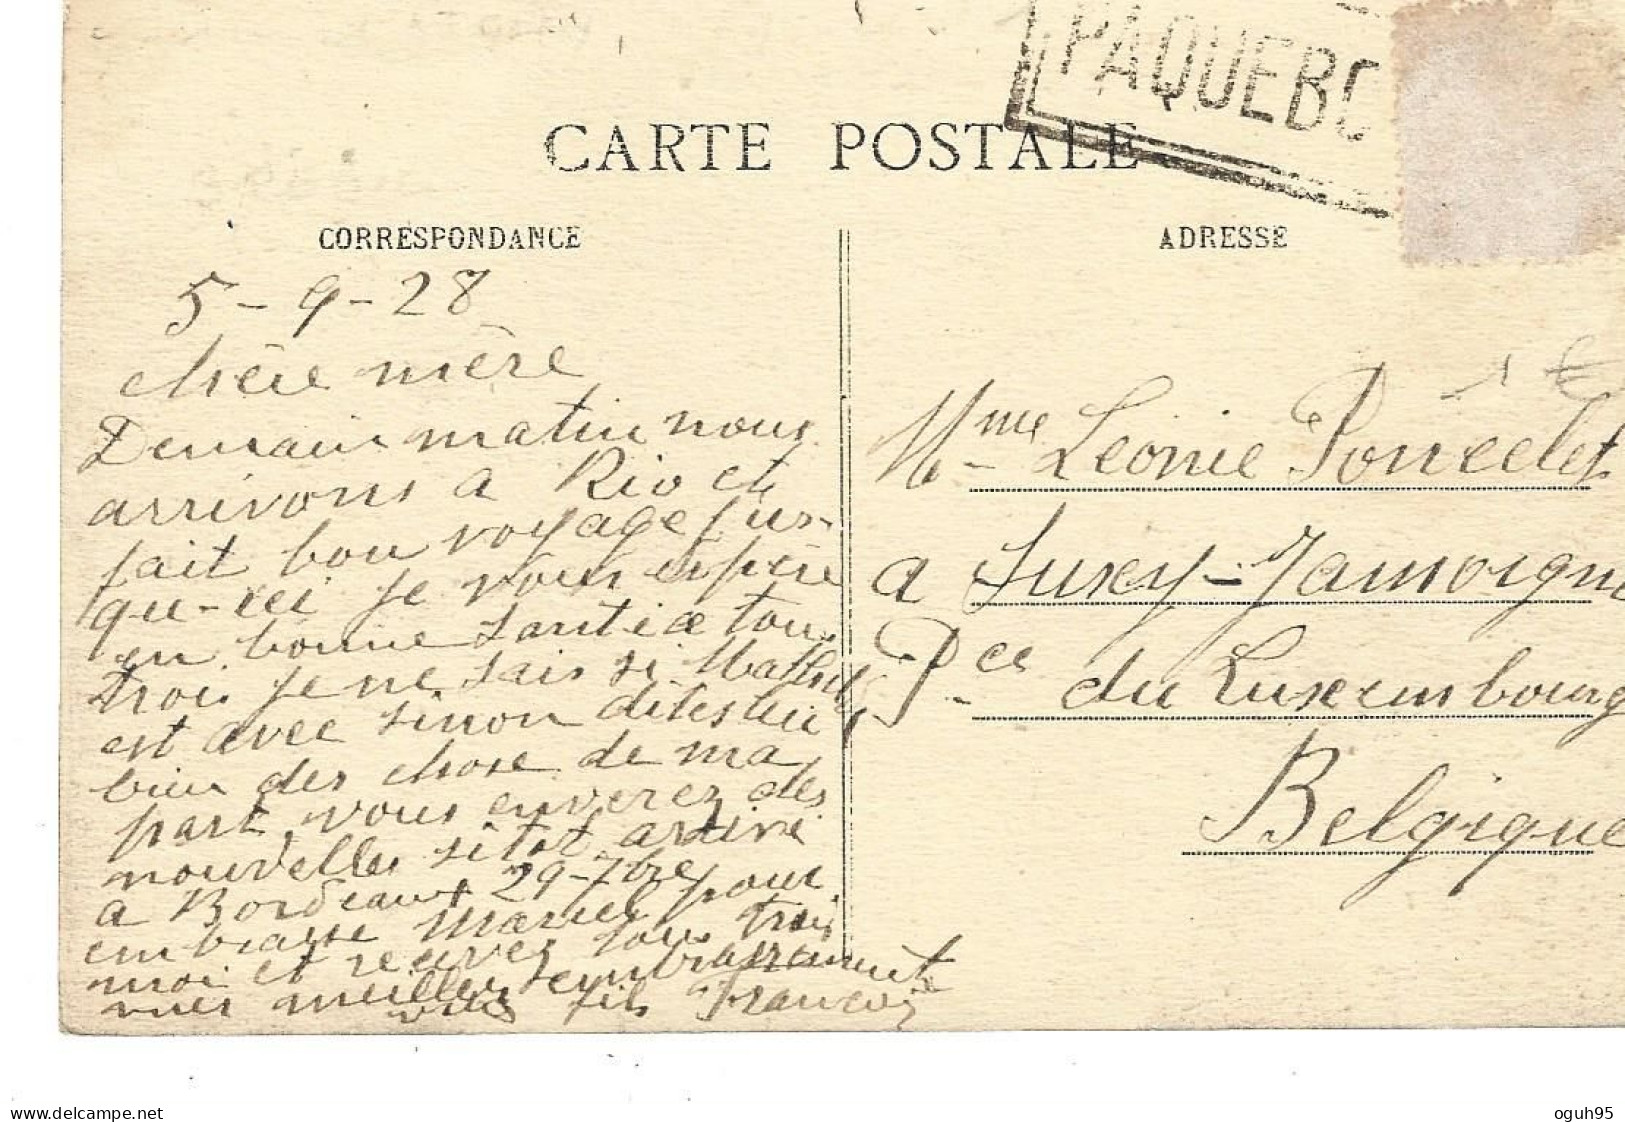 PAQUEBO
CARTE POSTALE
CORRESPONDANCE
ADRESSE
5-9-28
chère mère
Demain matin nous
arrivons a Rio et
fait bon voyage jus-
qu-ici je vous espère
en bonne santée tous
trois je ne sais si
est avec sinon dites lui
bien des chose de ma
part vous enverez des
nouvelles sitot arrivé
a Bordeaux 29-7bre
embrasse Marcel pour
moi et recevez tous trois
mes meilleurs embrassements
votre fils François
Mme Leonie Poncelet
a Suxey-Jamoigne
Pce du Luxembourg
Belgique
1 €
www.delcampe.net
oguh95